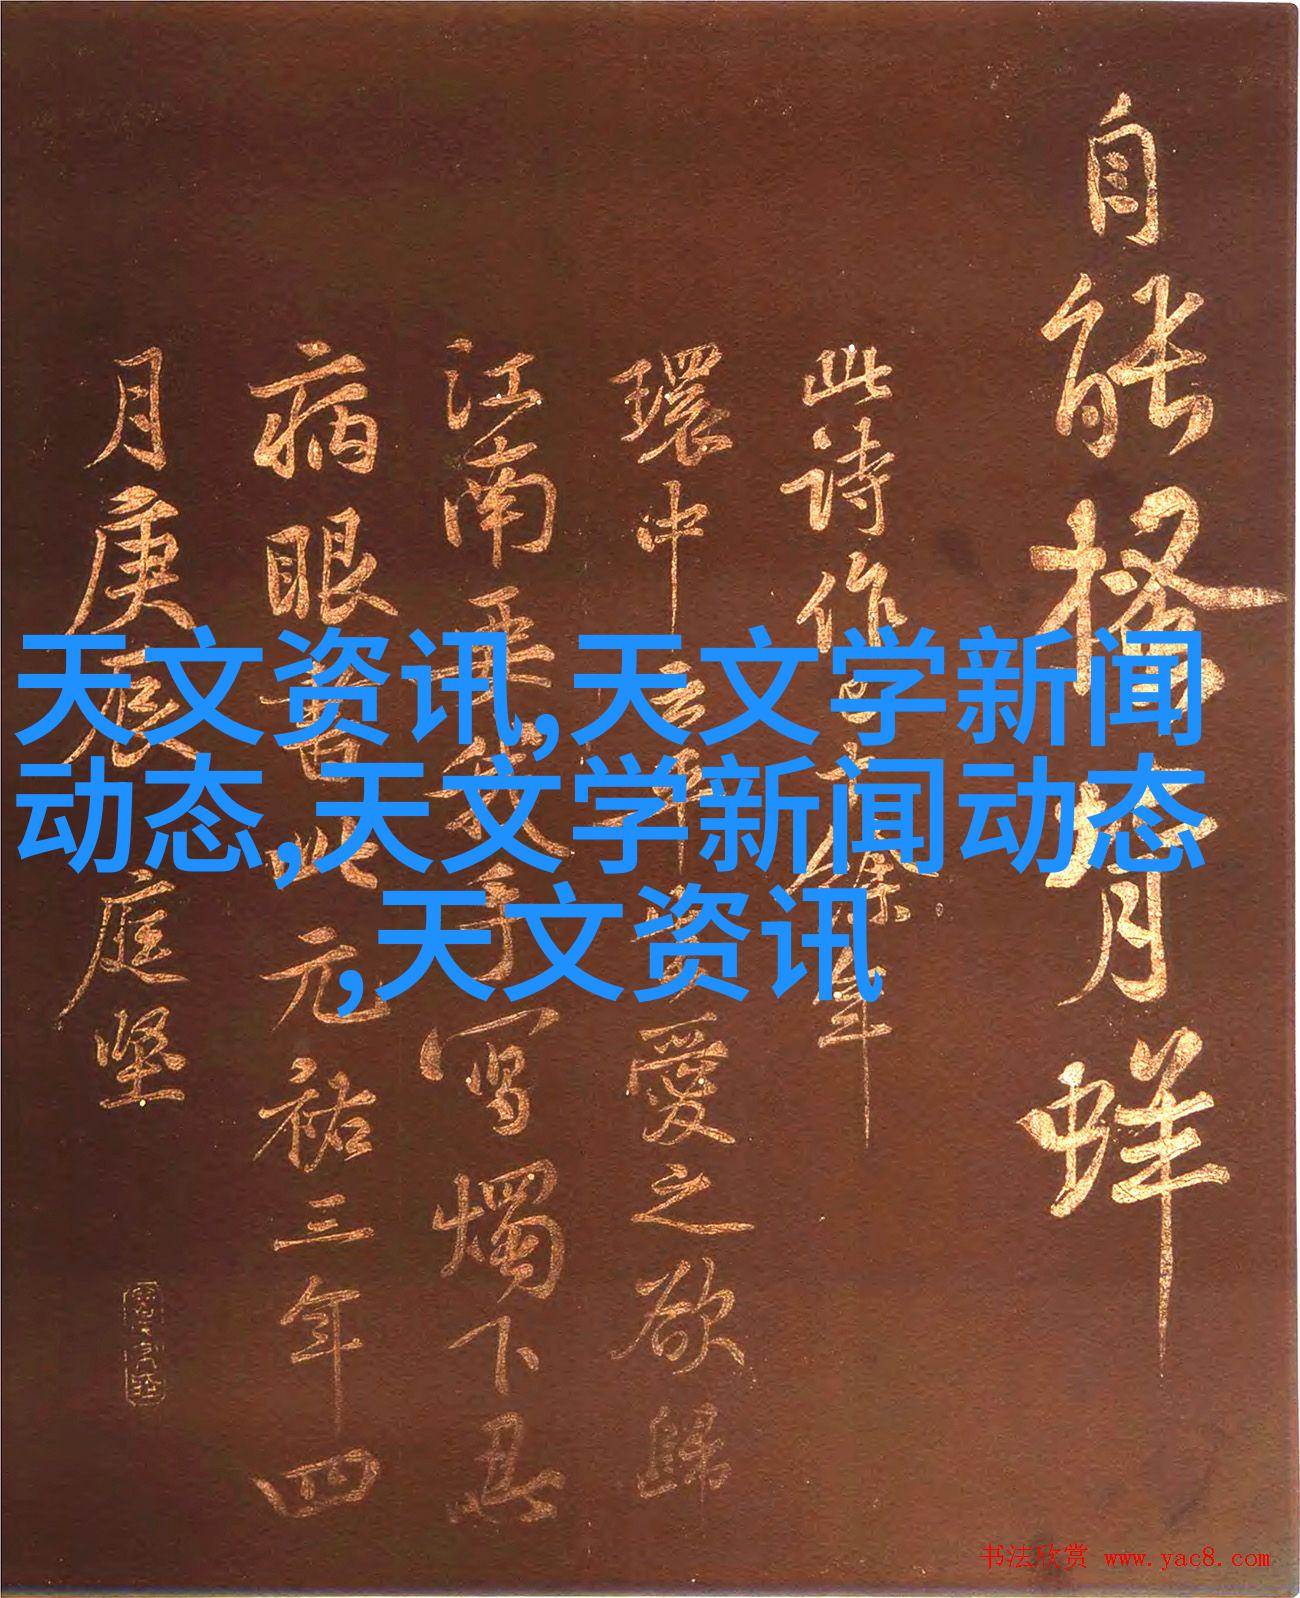 自能搔背痒
此诗作
環中
愛之欲歸
江南
手寫燭下忍
病眼書此元祐三年四
月庚辰庭堅
天文资讯,天文学新闻
动态,天文学新闻动态
,天文资讯
书法欣赏 www.yac8.com